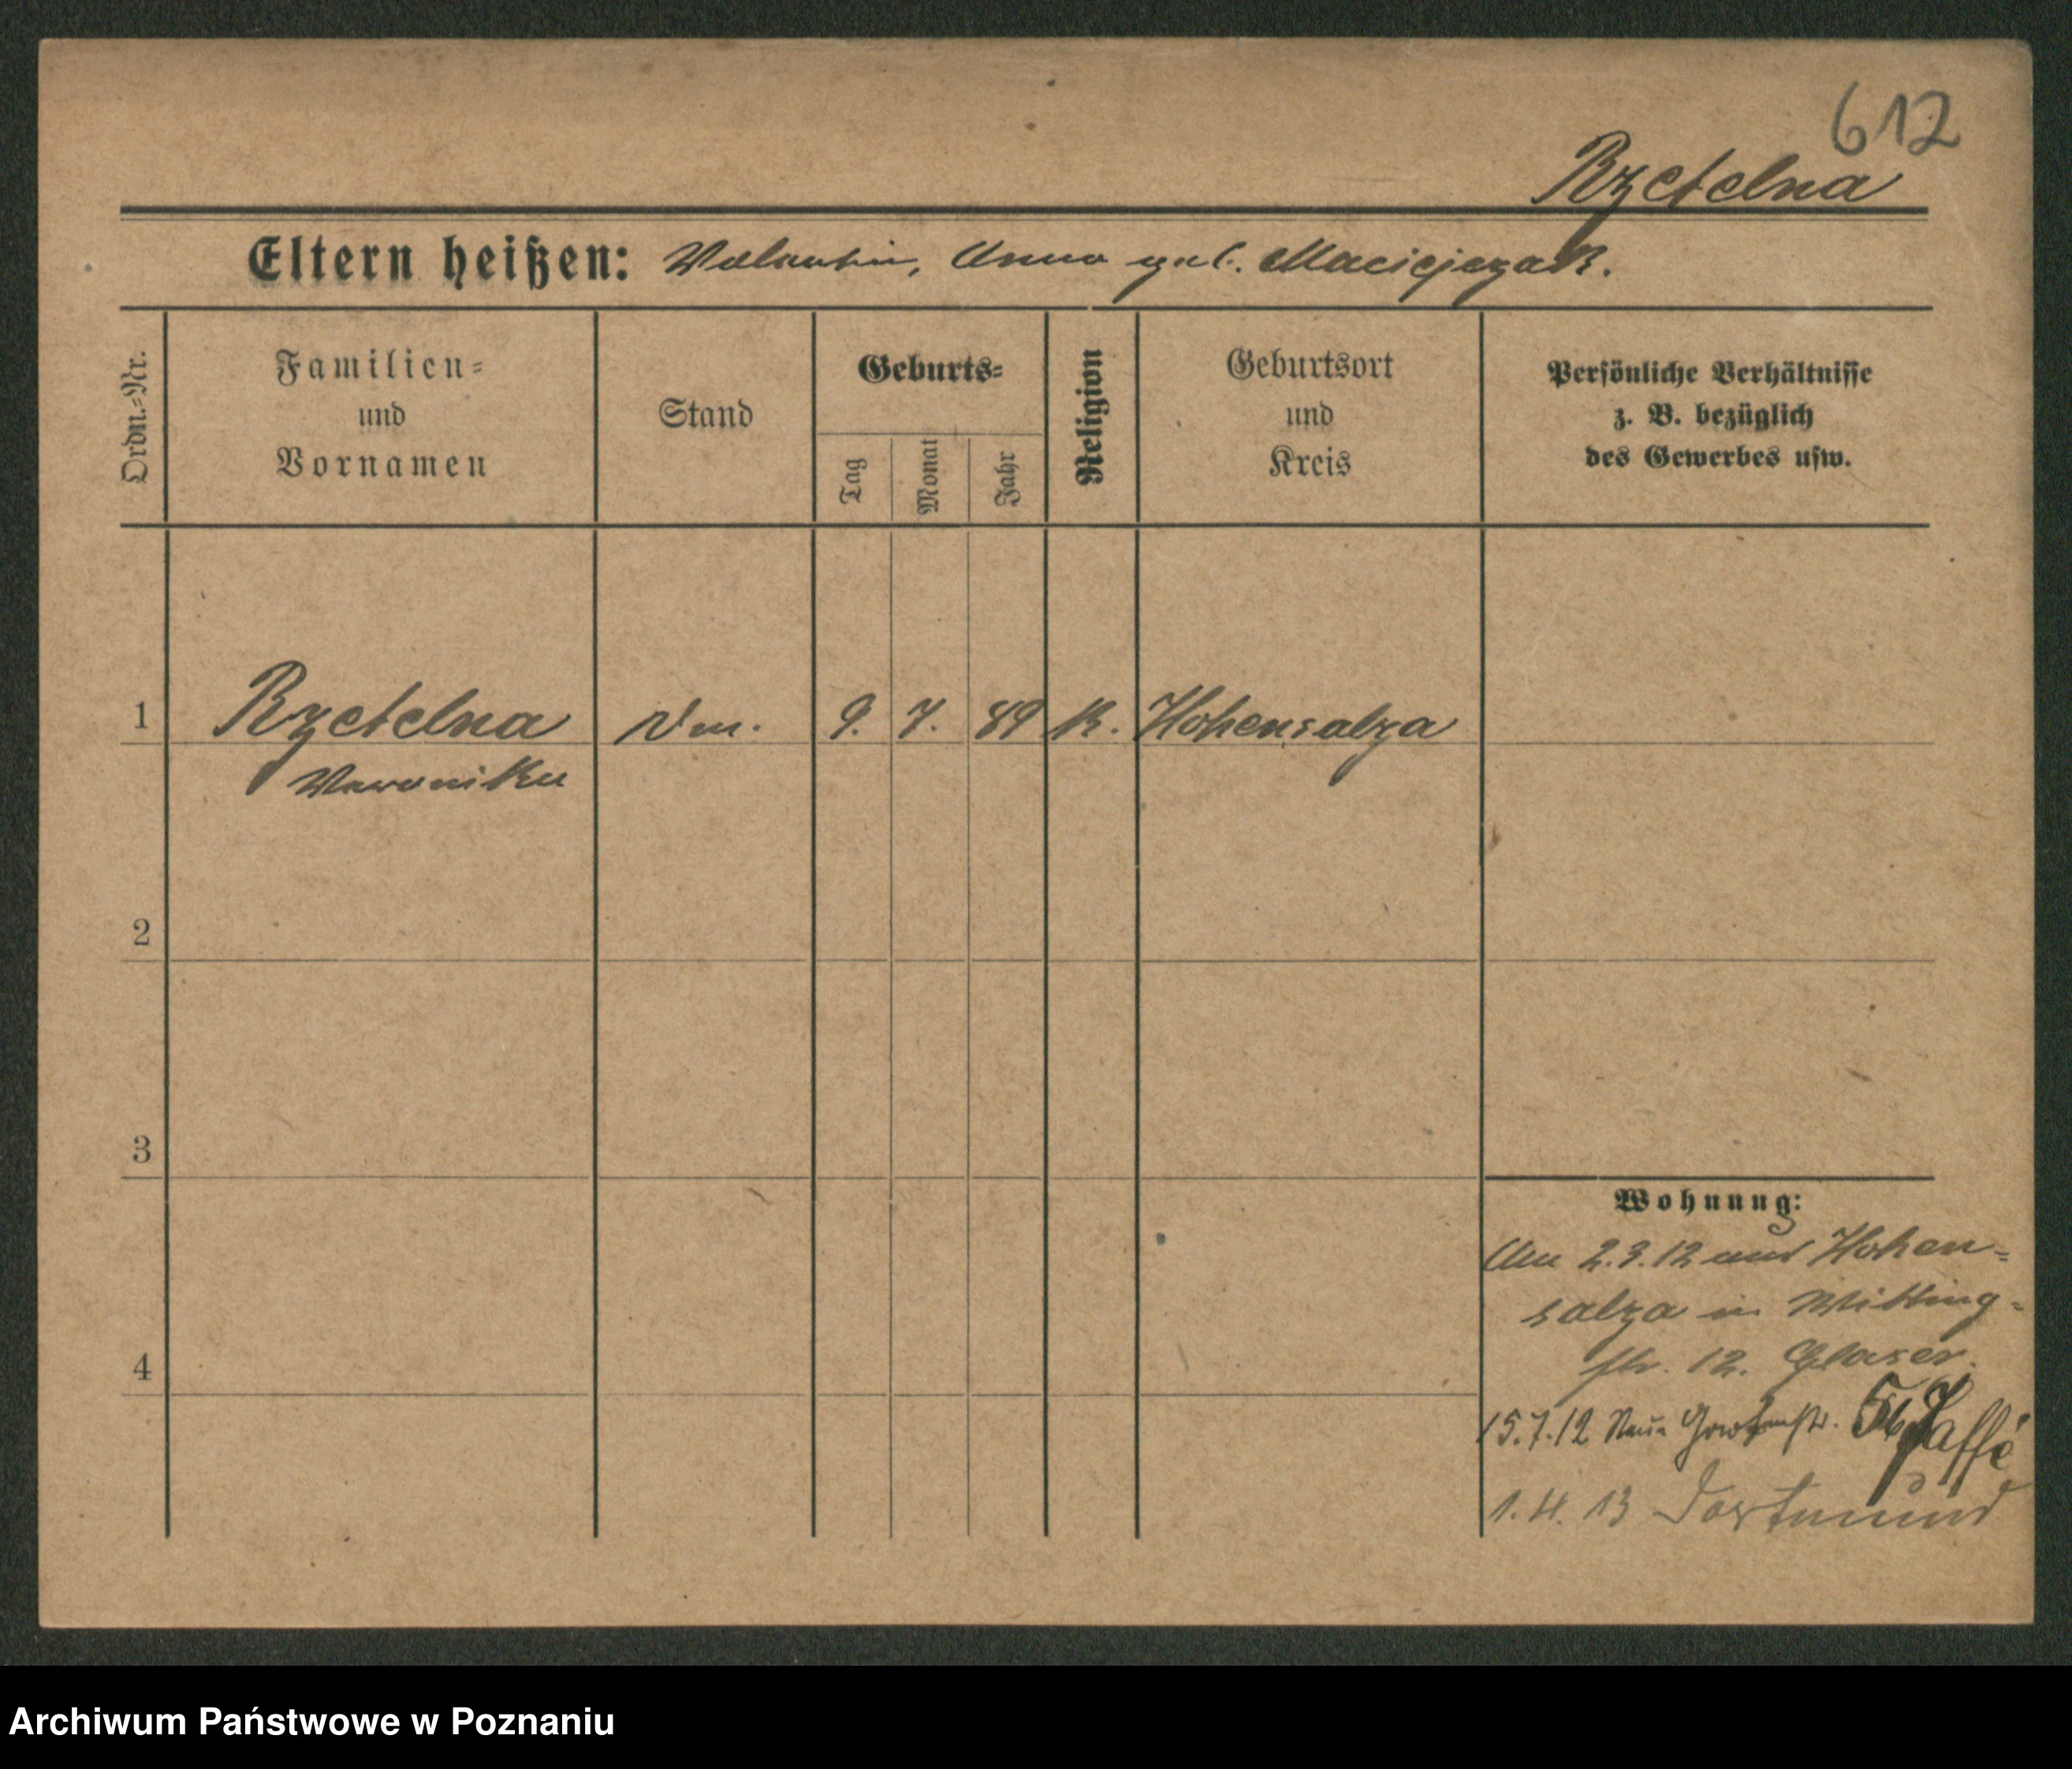 612
Rzetelna
Eltern heißen: Valentin, Anna geb. Maciejczak.
Ordn.-Nr.
Familien-
und
Vornamen
Stand
Geburts-
Tag
Monat
Jahr
Religion
Geburtsort
und
Kreis
Persönliche Verhältnisse
z. B. bezüglich
des Gewerbes usw.
1 Rzetelna 9. 7. 89 K. Hohensalza
Veronika
2
3
4
Wohnung:
Am 2.3.12 aus Hohen-
salza in Witting-
str. 12. Glaser.
15.7.12 Neue Gartenstr. Jaffé
1.4.13 Dortmund
Archiwum Państwowe w Poznaniu